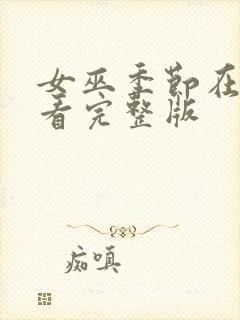 女巫季节在
看完整版
痴嗔